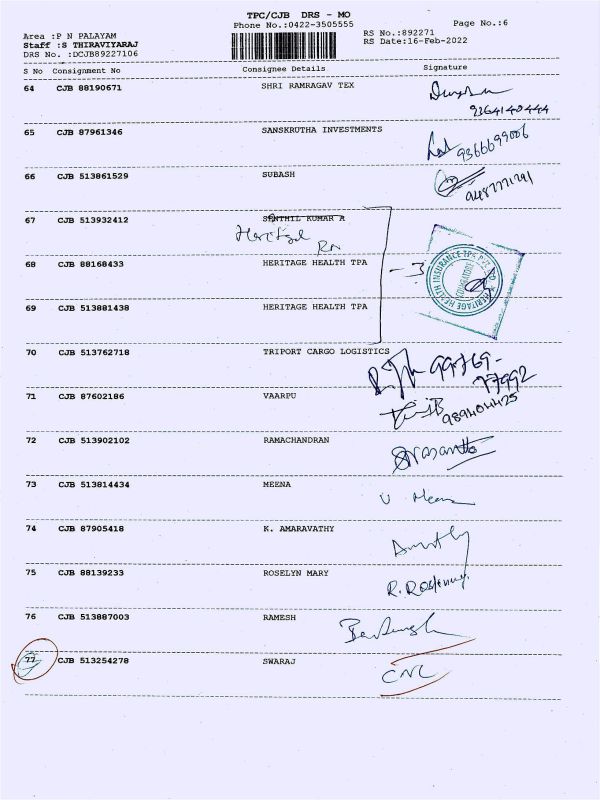 TPC/CJB DRS - MO
Phone No.:0422-3505555
Page No.:6
Area :P N PALAYAM
Staff :S THIRAVIYARAJ
DRS No. :DCJB89227106
RS No.:892271
RS Date:16-Feb-2022
S No Consignment No Consignee Details Signature
64 CJB 88190671 SHRI RAMRAGAV TEX
9364140444
65 CJB 87961346 SANSKRUTHA INVESTMENTS
9366699006
66 CJB 513861529 SUBASH
67 CJB 513932412 SENTHIL KUMAR A
Heritage
RN
68 CJB 88168433 HERITAGE HEALTH TPA
- 3
HERITAGE HEALTH INSURANCE TPA PVT LTD
COIMBATORE
69 CJB 513881438 HERITAGE HEALTH TPA
70 CJB 513762718 TRIPORT CARGO LOGISTICS
99769-
77992
71 CJB 87602186 VAARPU
9894044425
72 CJB 513902102 RAMACHANDRAN
Prasanth
73 CJB 513814434 MEENA
U Meena
74 CJB 87905418 K. AMARAVATHY
75 CJB 88139233 ROSELYN MARY
76 CJB 513887003 RAMESH
77 CJB 513254278 SWARAJ
CNL